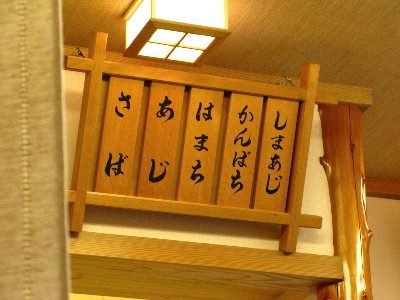 しまあじ
かんぱち
はまち
あじ
さば